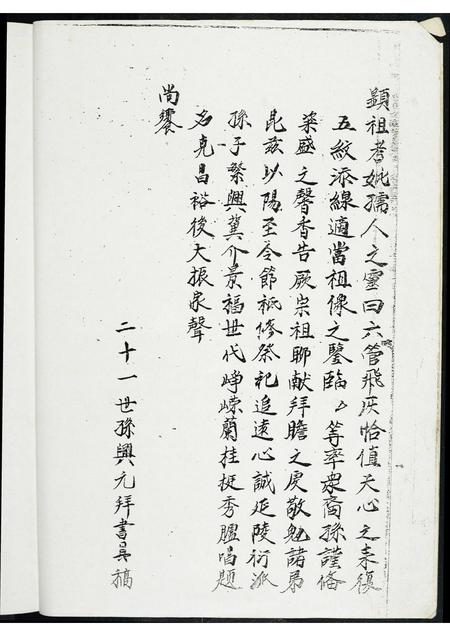 顯祖考妣孺人之靈曰六管飛灰恰值天心之来復
五紋添線適當祖像之鑒臨厶等率衆裔孫謹俻
粢盛之馨香告厥宗祖聊献拜瞻之虔敬勉諸弟
昆兹以陽至令節祗修祭祀追遠心誠延陵衍派
孫子繁興冀介景福世代峥嵘蘭桂挺秀臚唱題
名克昌裕後大振家聲
尚饗
二十一世孫興元拜書 稿